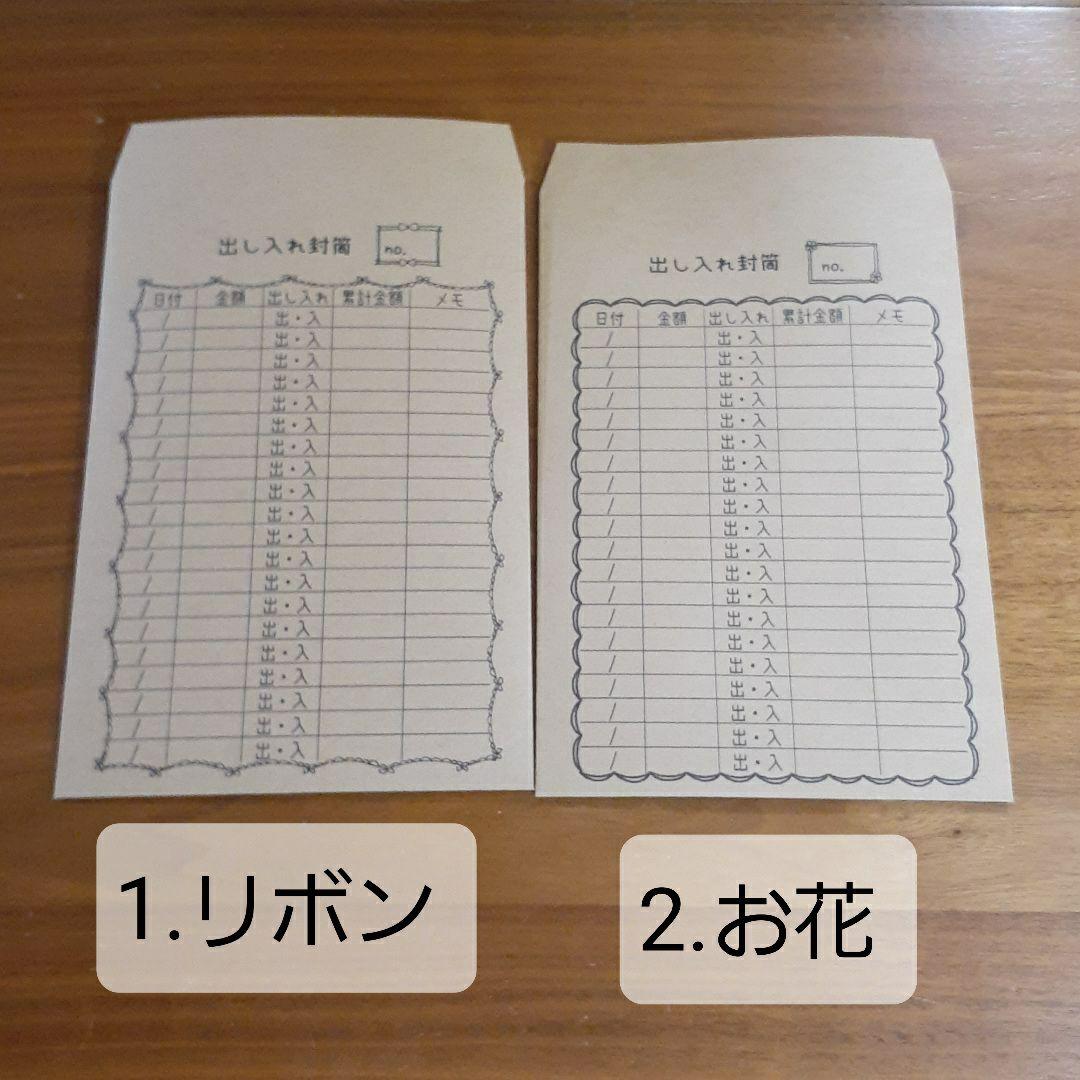 出し入れ封筒 no.
日付 金額 出し入れ 累計金額 メモ
/ 出・入
/ 出・入
/ 出・入
/ 出・入
/ 出・入
/ 出・入
/ 出・入
/ 出・入
/ 出・入
/ 出・入
/ 出・入
/ 出・入
/ 出・入
/ 出・入
/ 出・入
/ 出・入
/ 出・入
/ 出・入
/ 出・入
/ 出・入
1.リボン
出し入れ封筒 no.
日付 金額 出し入れ 累計金額 メモ
/ 出・入
/ 出・入
/ 出・入
/ 出・入
/ 出・入
/ 出・入
/ 出・入
/ 出・入
/ 出・入
/ 出・入
/ 出・入
/ 出・入
/ 出・入
/ 出・入
/ 出・入
/ 出・入
/ 出・入
/ 出・入
/ 出・入
/ 出・入
2.お花